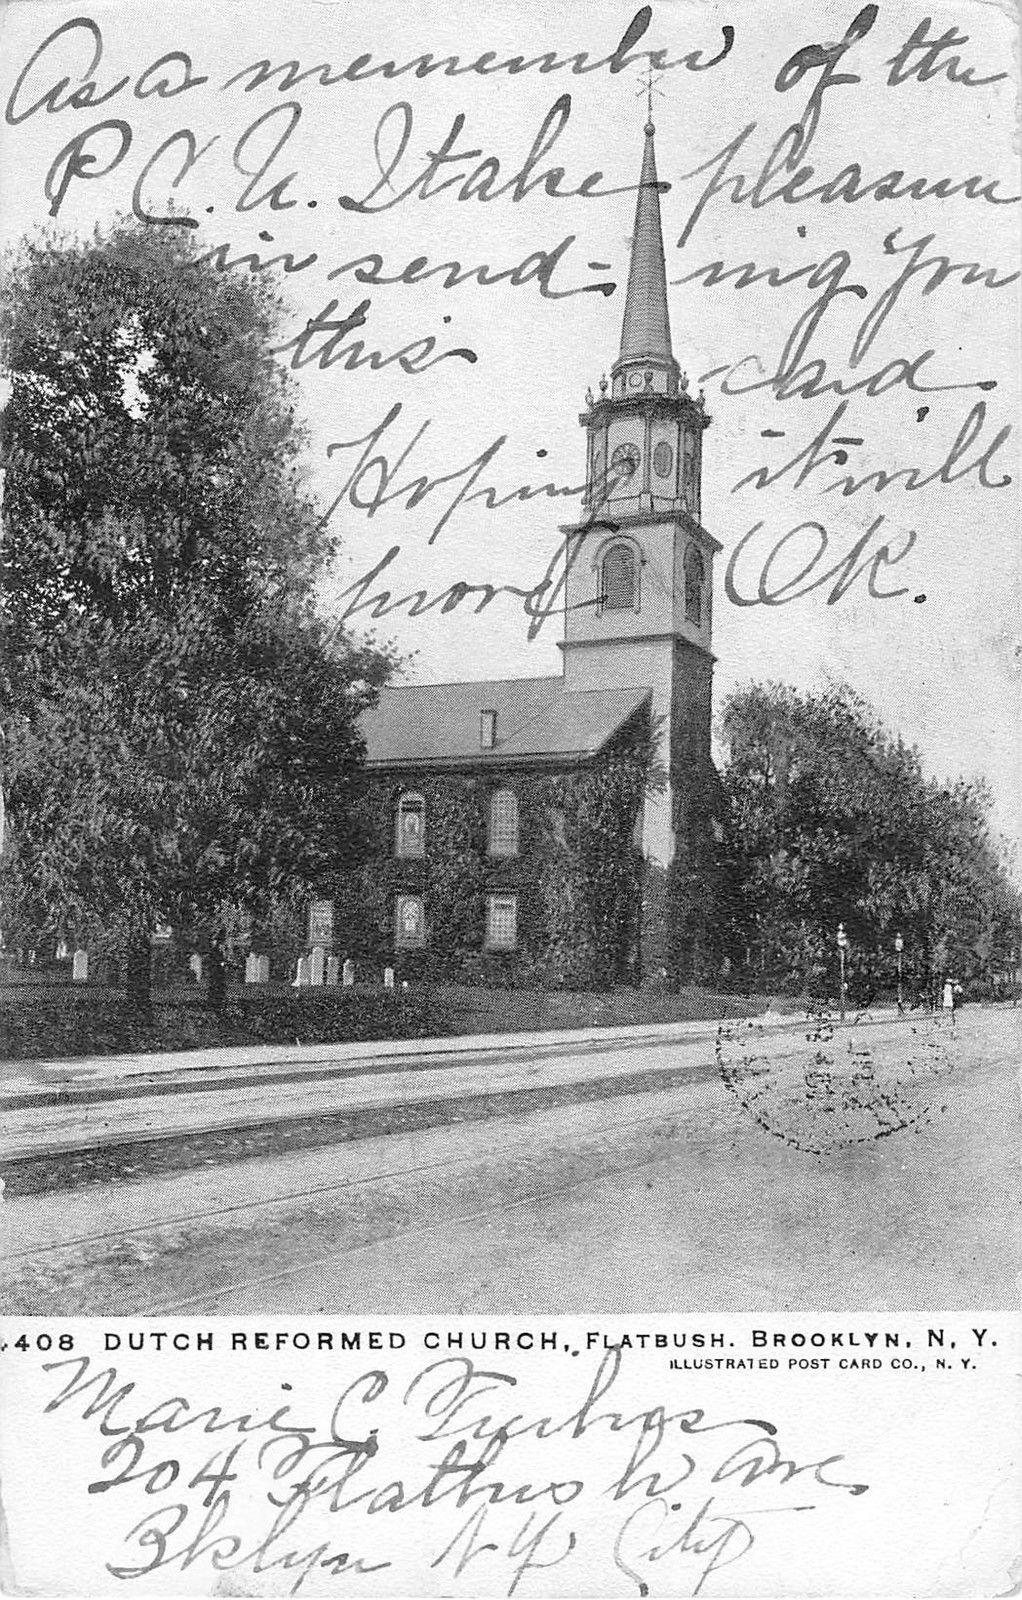 As a memember of the
P C. U. I take pleasure
in send= ing you
this card
Hoping it will
prove OK.
408 DUTCH REFORMED CHURCH, FLATBUSH. BROOKLYN, N, Y.
ILLUSTRATED POST CARD CO., N. Y.
Marie C.
204 Flatbush Ave
Bklyn N Y City